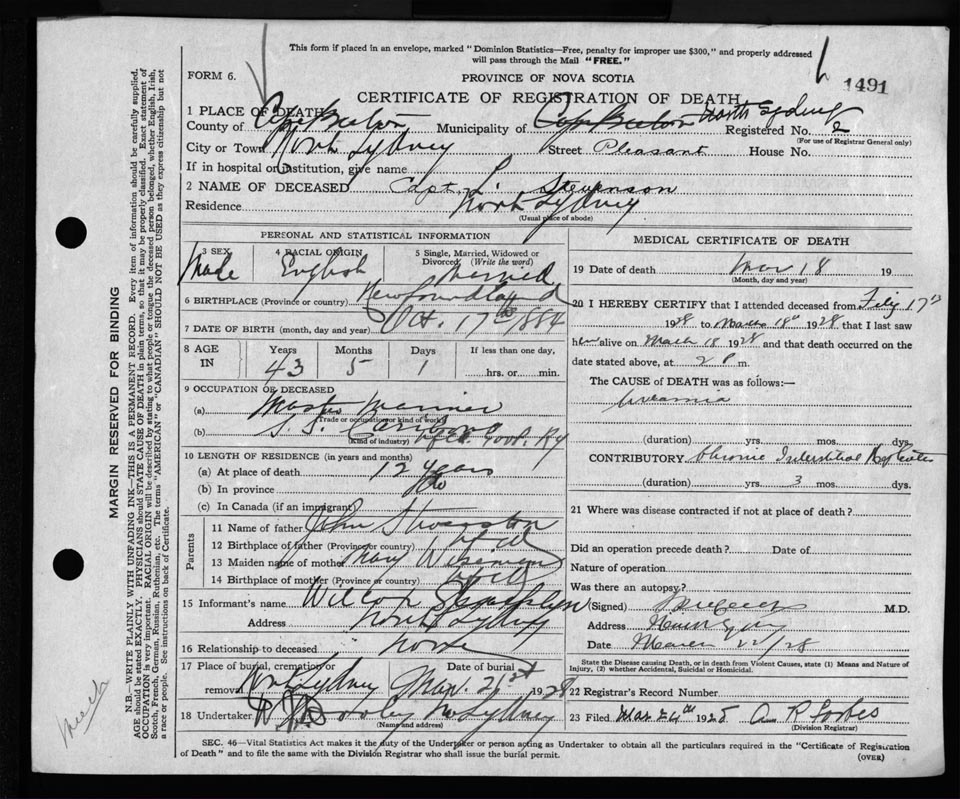 This form if placed in an envelope, marked "Dominion Statistics—Free, penalty for improper use $300," and properly addressed
will pass through the Mail "FREE."
FORM 6.
PROVINCE OF NOVA SCOTIA
1491
CERTIFICATE OF REGISTRATION OF DEATH
1 PLACE OF DEATH
County of Cape Breton Municipality of Cape Breton North Sydney Registered No. 2
(For use of Registrar General only)
City or Town North Sydney Street Pleasant House No.
If in hospital or institution, give name
2 NAME OF DECEASED Capt. L. Stevenson
Residence North Sydney
(Usual place of abode)
PERSONAL AND STATISTICAL INFORMATION
3 SEX Male
4 RACIAL ORIGIN English
5 Single, Married, Widowed or
Divorced (Write the word) Married
6 BIRTHPLACE (Province or country) Newfoundland
7 DATE OF BIRTH (month, day and year) Oct. 17th 1884
8 AGE IN
Years Months Days If less than one day,
43 5 1 hrs. or min.
9 OCCUPATION OF DECEASED
(a) Master Mariner
(Trade or occupation or kind of work)
(b) S.S. Caribou Nfld. Govt. Ry
(Kind of industry)
10 LENGTH OF RESIDENCE (in years and months)
(a) At place of death 12 years
(b) In province
(c) In Canada (if an immigrant)
Parents
11 Name of father John Stevenson
12 Birthplace of father (Province or country) Nfld
13 Maiden name of mother Mary
14 Birthplace of mother (Province or country) Nfld
15 Informant's name
Address North Sydney
16 Relationship to deceased None
17 Place of burial, cremation or
removal North Sydney
Date of burial
Mar. 21st 1928
18 Undertaker No. Sydney
(Name and address)
MEDICAL CERTIFICATE OF DEATH
19 Date of death Mar 18 19
(Month, day and year)
20 I HEREBY CERTIFY that I attended deceased from 17th
1928 to March 18th 1928 that I last saw
him alive on March 18 1928 and that death occurred on the
date stated above, at 2 P m.
The CAUSE of DEATH was as follows:—
Uraemia
(duration) yrs. mos. dys.
CONTRIBUTORY Chronic Interstitial Nephritis
(duration) yrs. 3 mos. dys.
21 Where was disease contracted if not at place of death?
Did an operation precede death? Date of
Nature of operation
Was there an autopsy?
(Signed) M.D.
Address North Sydney
Date March /28
State the Disease causing Death, or in death from Violent Causes, state (1) Means and Nature of
Injury, (2) whether Accidental, Suicidal or Homicidal.
22 Registrar's Record Number
23 Filed Mar 24th 1928 A R Forbes
(Division Registrar)
SEC. 46—Vital Statistics Act makes it the duty of the Undertaker or person acting as Undertaker to obtain all the particulars required in the "Certificate of Registration
of Death" and to file the same with the Division Registrar who shall issue the burial permit.
(OVER)
MARGIN RESERVED FOR BINDING
N.B.—WRITE PLAINLY WITH UNFADING INK—THIS IS A PERMANENT RECORD. Every item of information should be carefully supplied.
AGE should be stated EXACTLY. PHYSICIANS should STATE CAUSE OF DEATH in plain terms, so that it may be properly classified. Exact statement of
OCCUPATION is very important. RACIAL ORIGIN will be described by stating to what people or tongue the deceased person belonged, whether English, Irish,
Scotch, French, German, Russian, Ruthenian, etc. The terms "AMERICAN" or "CANADIAN" SHOULD NOT BE USED as they express citizenship but not
a race or people. See instructions on back of Certificate.